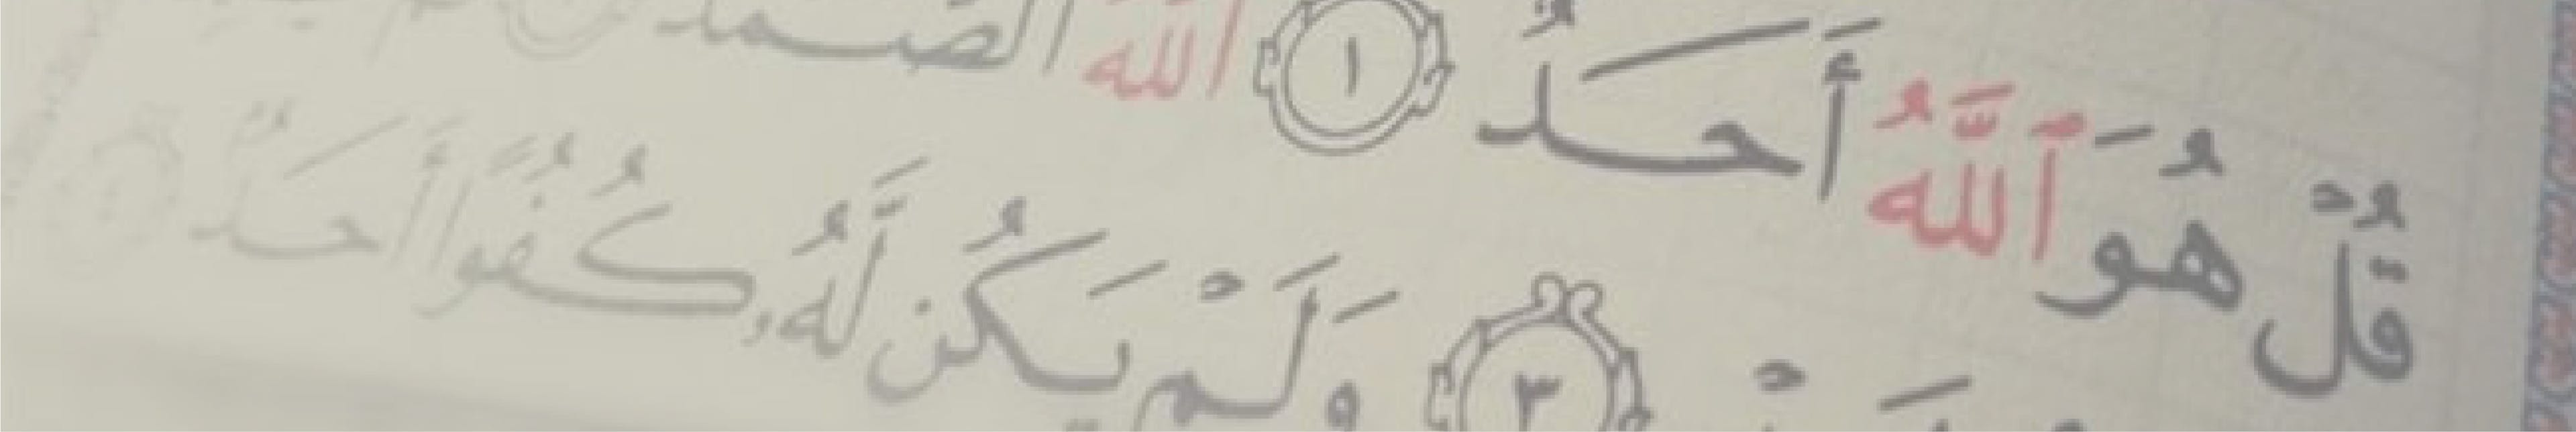 قُلْ هُوَ ٱللَّهُ أَحَدٌ ١ ٱللَّه ٱلصمد
٣ وَلَمْ يَكُن لَّهُۥ كُفُوًا أَحَدٌۢ